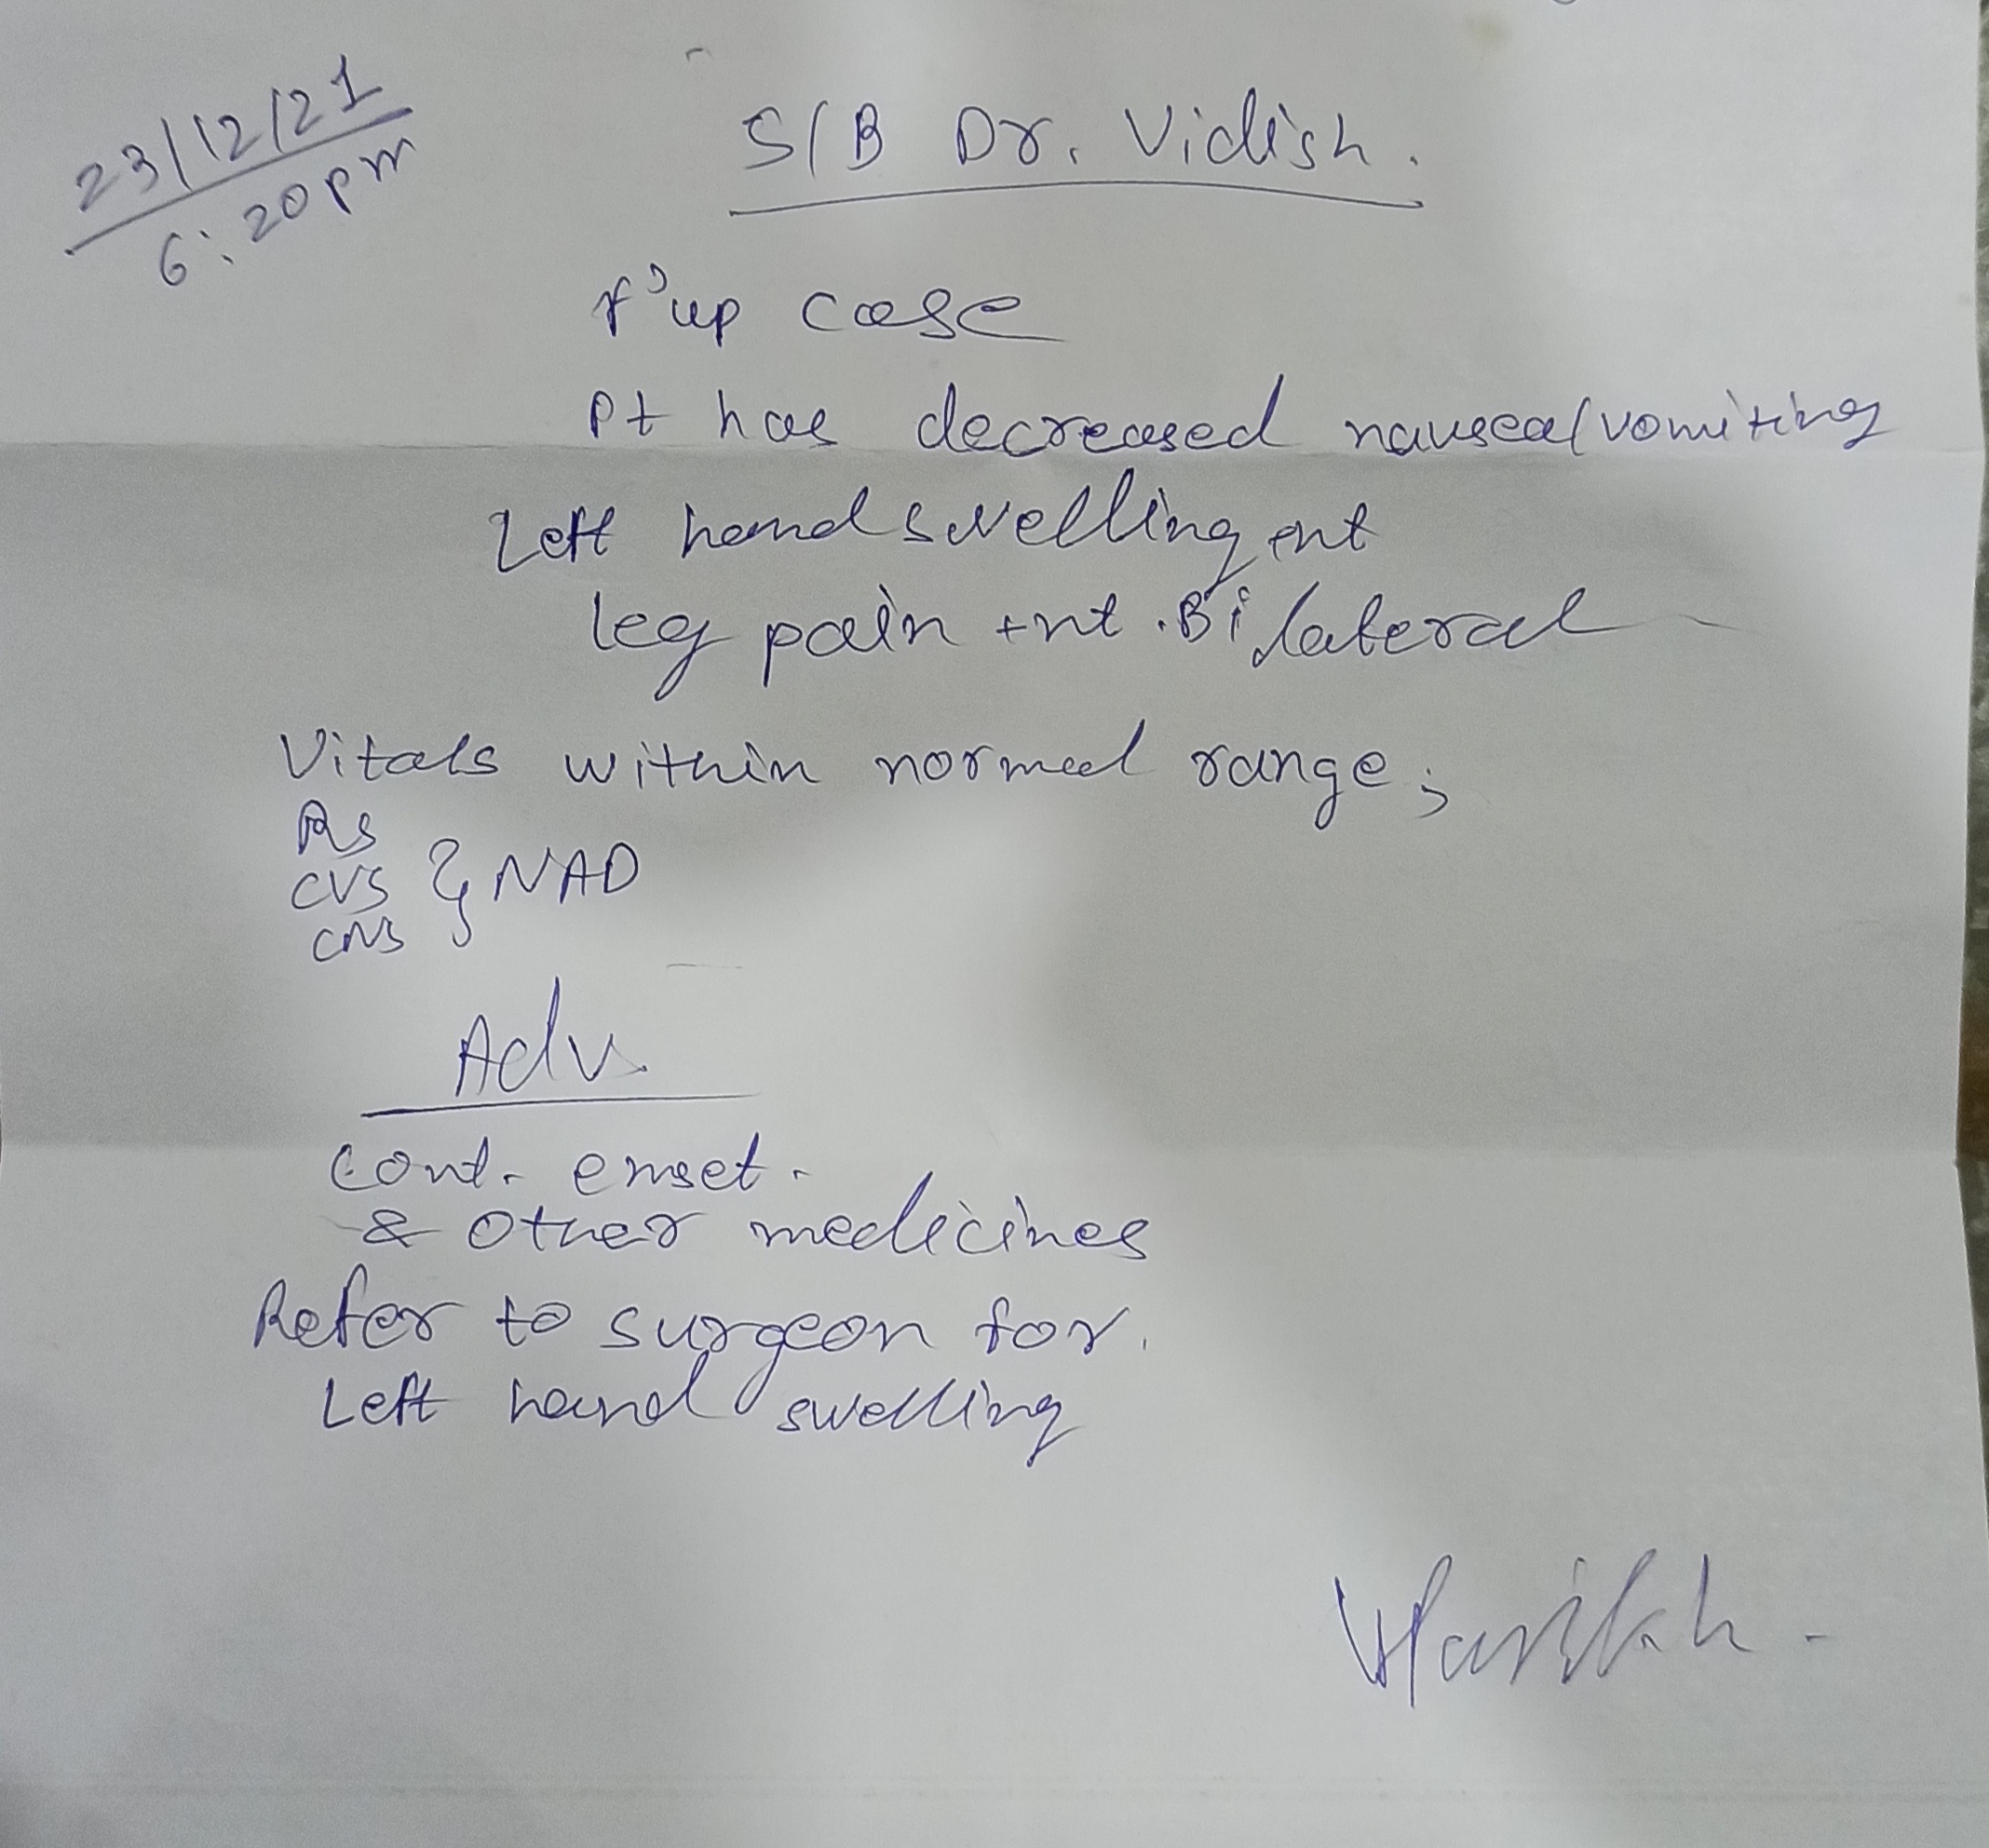 23/12/21
6:20pm
S/B Dr. Vidish.
f'up case
Pt has decreased nausea/vomiting
Left hand swelling ent
leg pain +nt . Bilateral
Vitals within normal range;
RS
CVS } NAD
CNS
Adv.
Cont. emset.
& other medicines
Refer to surgeon for.
Left hand swelling